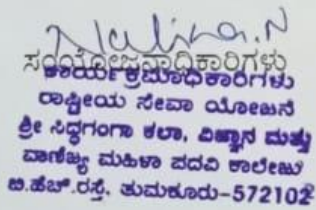 Nalina.N
ಸಂಯೋಜನಾಧಿಕಾರಿಗಳು
ಕಾರ್ಯಕ್ರಮಾಧಿಕಾರಿಗಳು
ರಾಷ್ಟ್ರೀಯ ಸೇವಾ ಯೋಜನೆ
ಶ್ರೀ ಸಿದ್ಧಗಂಗಾ ಕಲಾ, ವಿಜ್ಞಾನ ಮತ್ತು
ವಾಣಿಜ್ಯ ಮಹಿಳಾ ಪದವಿ ಕಾಲೇಜು
ಬಿ.ಹೆಚ್.ರಸ್ತೆ, ತುಮಕೂರು-572102